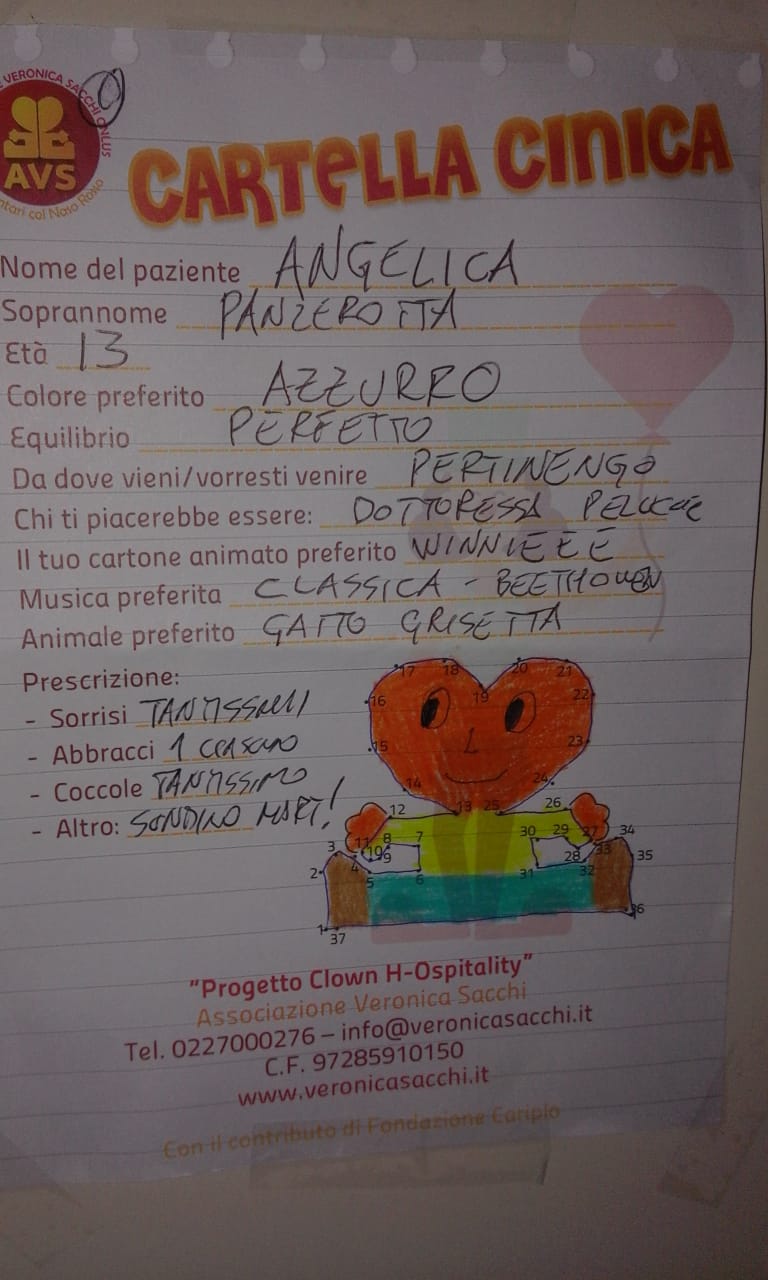 E VERONICA SACCHI ONLUS
AVS
ntari col Naso Rosso
CARTELLA CINICA
Nome del paziente ANGELICA
Soprannome PANZEROTTA
Età 13
Colore preferito AZZURRO
Equilibrio PERFETTO
Da dove vieni/vorresti venire PERTINENGO
Chi ti piacerebbe essere: DOTTORESSA
Il tuo cartone animato preferito WINNIEEE
Musica preferita CLASSICA - BEETHOVEN
Animale preferito GATTO GRISETTA
Prescrizione:
- Sorrisi TANTISSIMI
- Abbracci 1 CIASCUNO
- Coccole TANTISSIMO
- Altro: SONDINO MART!
17 18 19 20 21
16 22
15 23
14 24
12 13 25 26
11 8 7 30 29 27 34
3 10 9 28 33 35
2 4 5 6 31 32
1 37 36
"Progetto Clown H-Ospitality"
Associazione Veronica Sacchi
Tel. 0227000276 – info@veronicasacchi.it
C.F. 97285910150
www.veronicasacchi.it
Con il contributo di Fondazione Cariplo